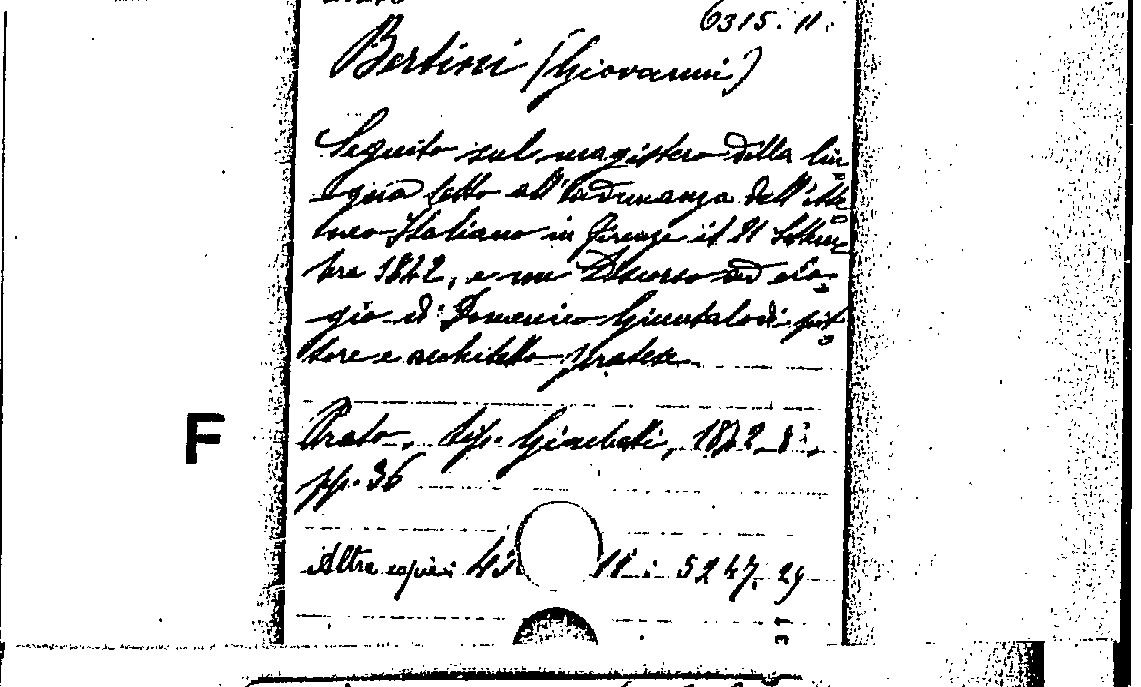 6315. 11.
Bertini (Giovanni)
Seguito sul magistero della lin
gua letto all'adunanza dell'Ate
neo Italiano in Firenze il 21 Settem
bre 1842, e un Discorso ad elo
gio di Domenico Giuntalodi pit
tore e architetto pratese.
F
Prato, tip. Giachetti, 1842, 8º,
pp. 36
Altre copie: 43 11 : 5247. 29
31